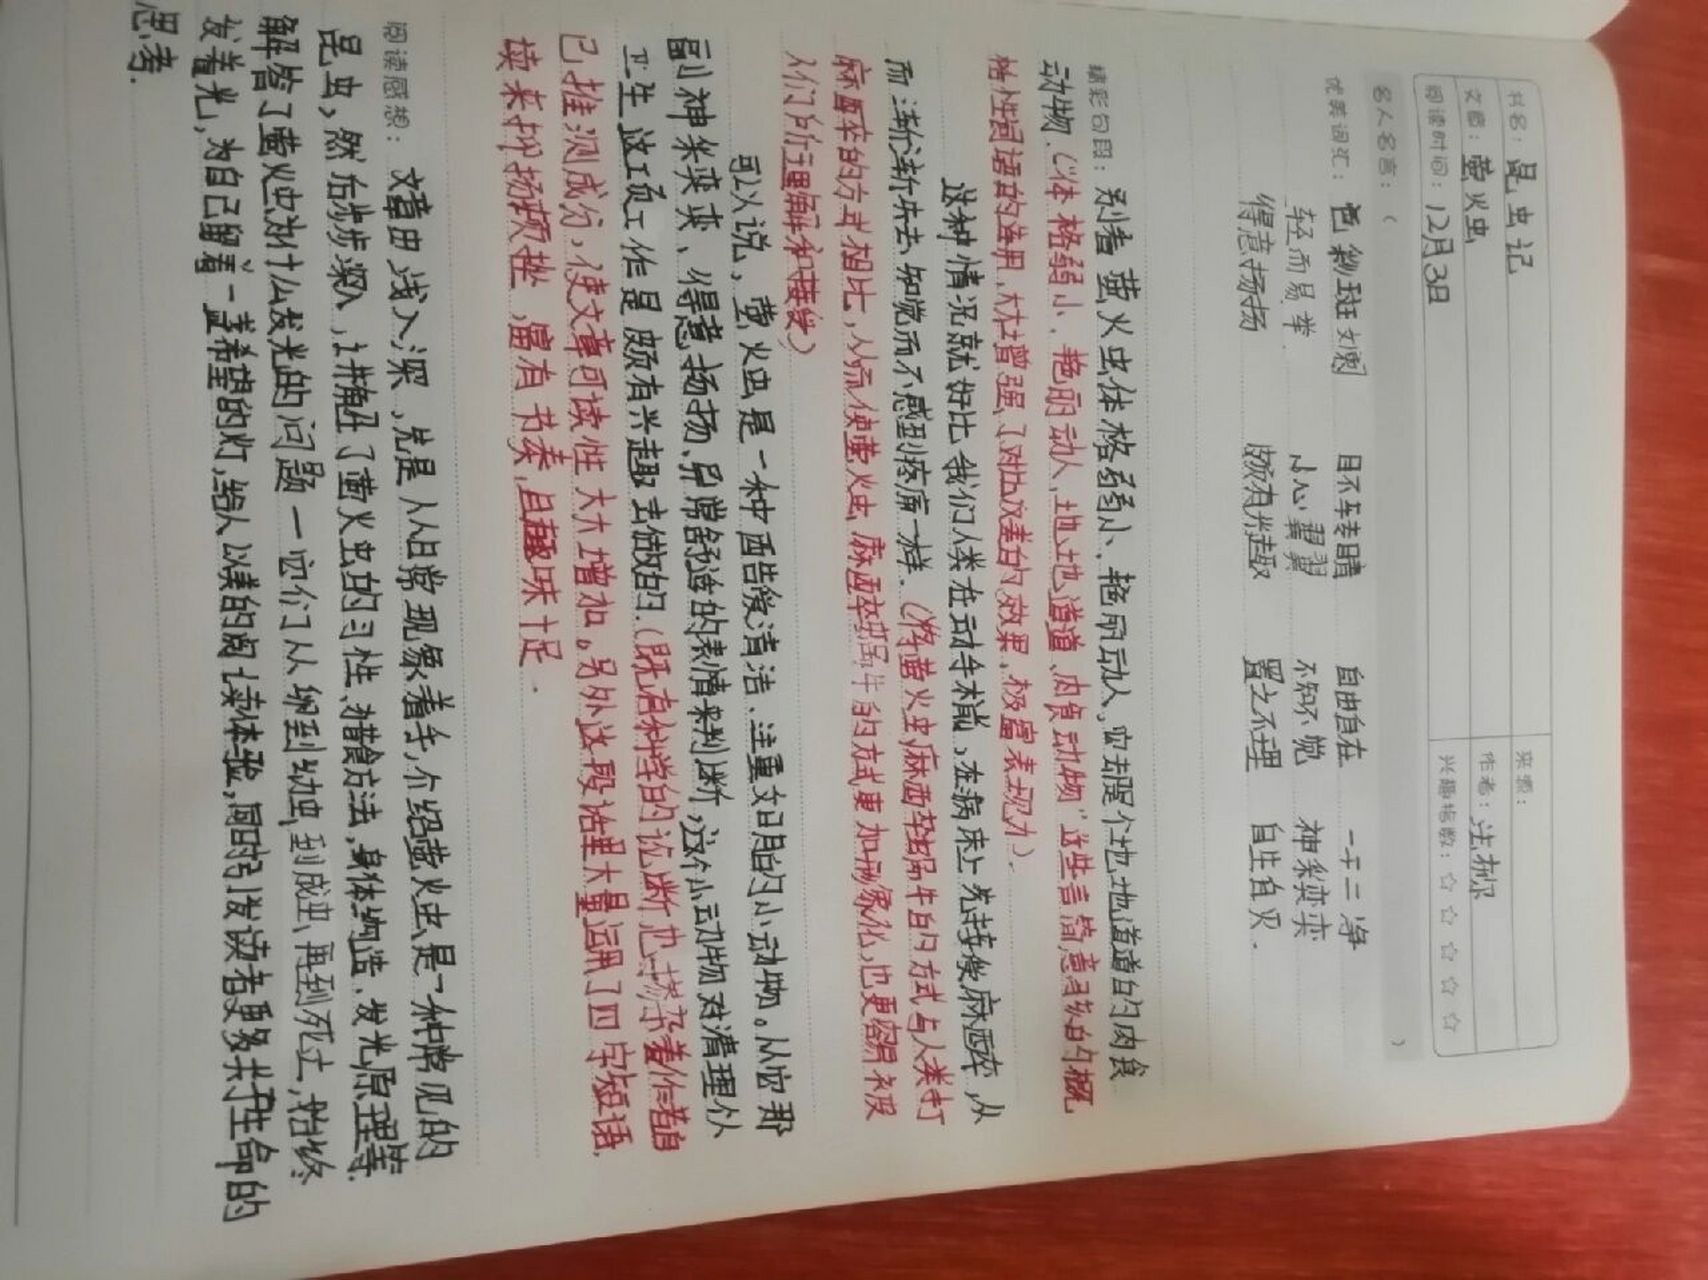 书名：昆虫记 来源：
文题：萤火虫 作者：法布尔
阅读时间：12月3日 兴趣指数：☆☆☆☆☆
名人名言：（ ）
优美词汇：色彩斑斓 目不转睛 自由自在 一干二净
轻而易举 小心翼翼 不知不觉 神彩奕奕
得意扬扬 颇有兴趣 置之不理 自生自灭.
精彩句段：别看萤火虫体格弱小、艳丽动人，它却是个地地道道的肉食
动物.（"体格弱小、艳丽动人,地地道道、肉食动物"这些言简意赅的概
括性词语的连用,大大增强了对比反差的效果,极富表现力）.
这种情况就好比我们人类在动手术前，在病床上先接受麻醉，从
而渐渐失去知觉而不感到疼痛一样.（将萤火虫麻醉蜗牛的方式与人类打
麻醉的方式相比,从而使萤火虫麻醉蜗牛的方式更加形象化,也更容易被
人们所理解和接受）
可以说，萤火虫是一种酷爱清洁、注重文明的小动物。从它那
副神采奕奕、得意扬扬、异常舒适的表情来判断,这个小动物对清理个
卫生这项工作是颇有兴趣去做的.（既有科学的论断也掺杂着作者自
己推测成分,使文章可读性大大增加。另外这段话里大量运用了四字短语,
读来抑扬顿挫,富有节奏,且趣味十足.
阅读感想：文章由浅入深，先是从日常现象着手,介绍萤火虫是一种常见的
昆虫,然后步步深入,讲解了萤火虫的习性、猎食方法,身体构造、发光原理等.
解答了萤火虫为什么发光的问题一它们从卵到幼虫,到成虫,再到死亡,始终
发着光,为自己留着一盏希望的灯,给人以美的阅读体验,同时引发读者更多关于生命的
思考.